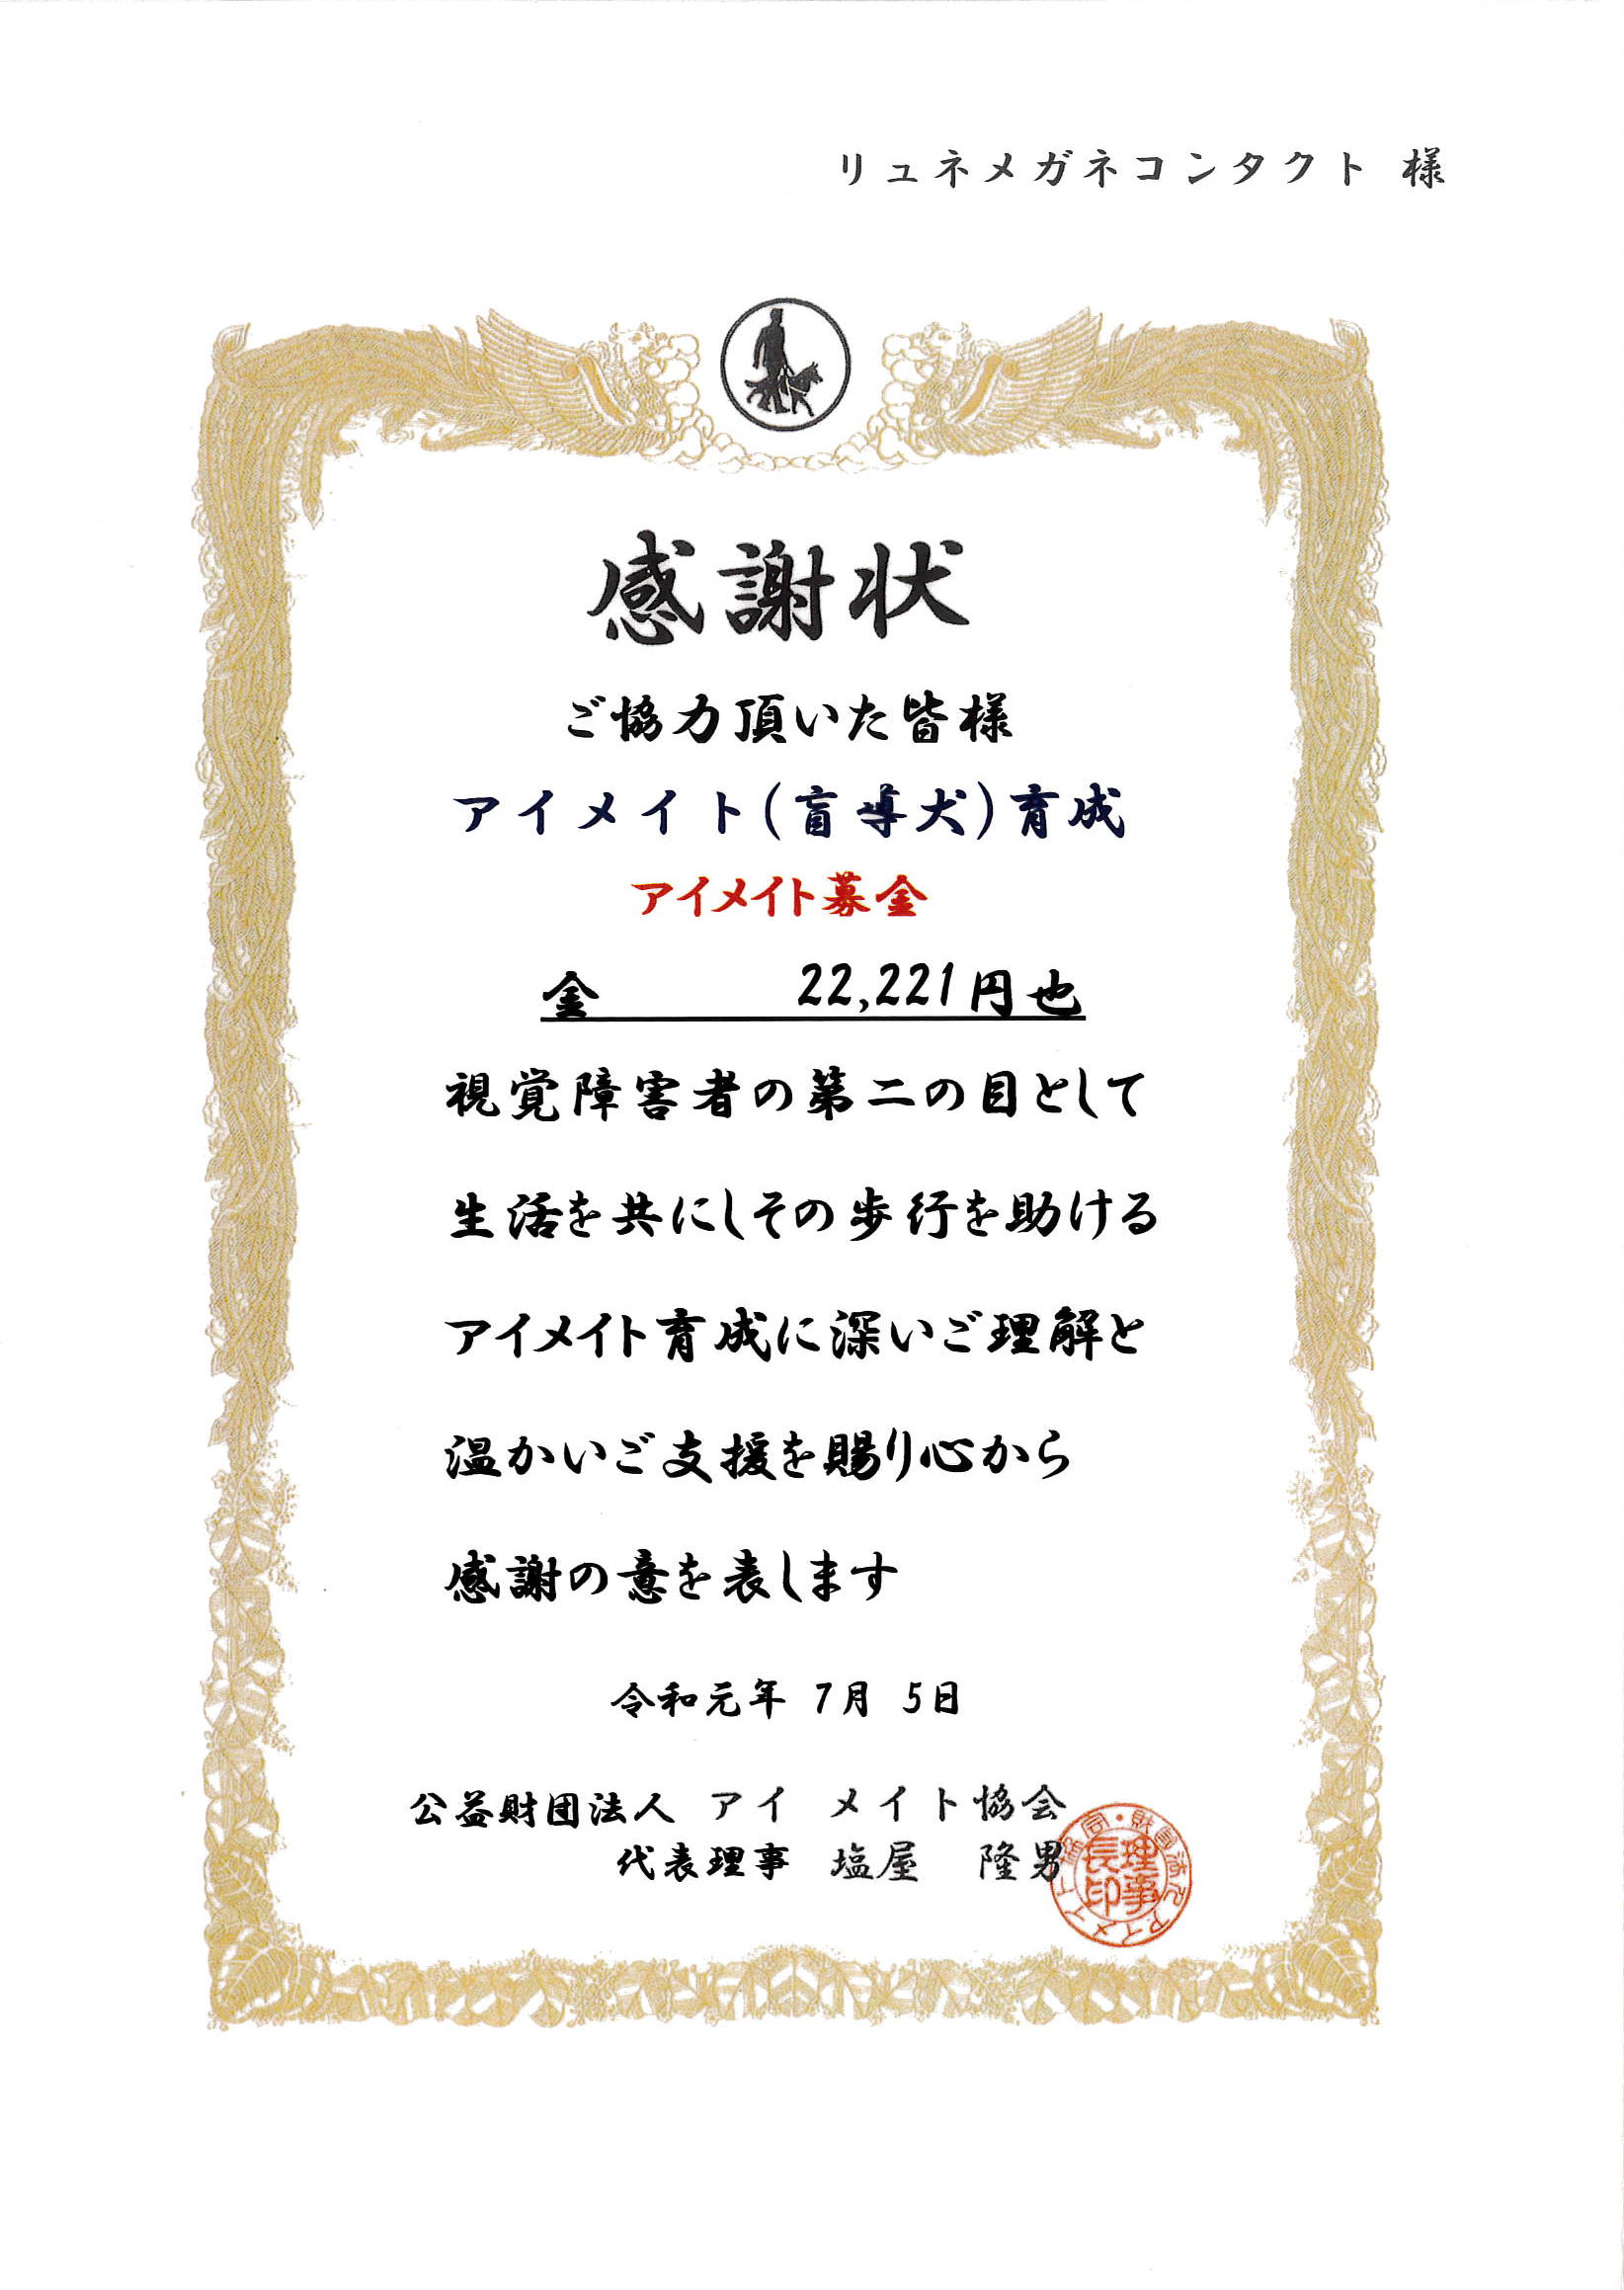 リュネメガネコンタクト 様
感謝状
ご協力頂いた皆様
アイメイト(盲導犬)育成
アイメイト募金
金 22,221円也
視覚障害者の第二の目として
生活を共にしその歩行を助ける
アイメイト育成に深いご理解と
温かいご支援を賜り心から
感謝の意を表します
令和元年 7月 5日
公益財団法人 アイメイト協会
代表理事 塩屋 隆男
理事長印